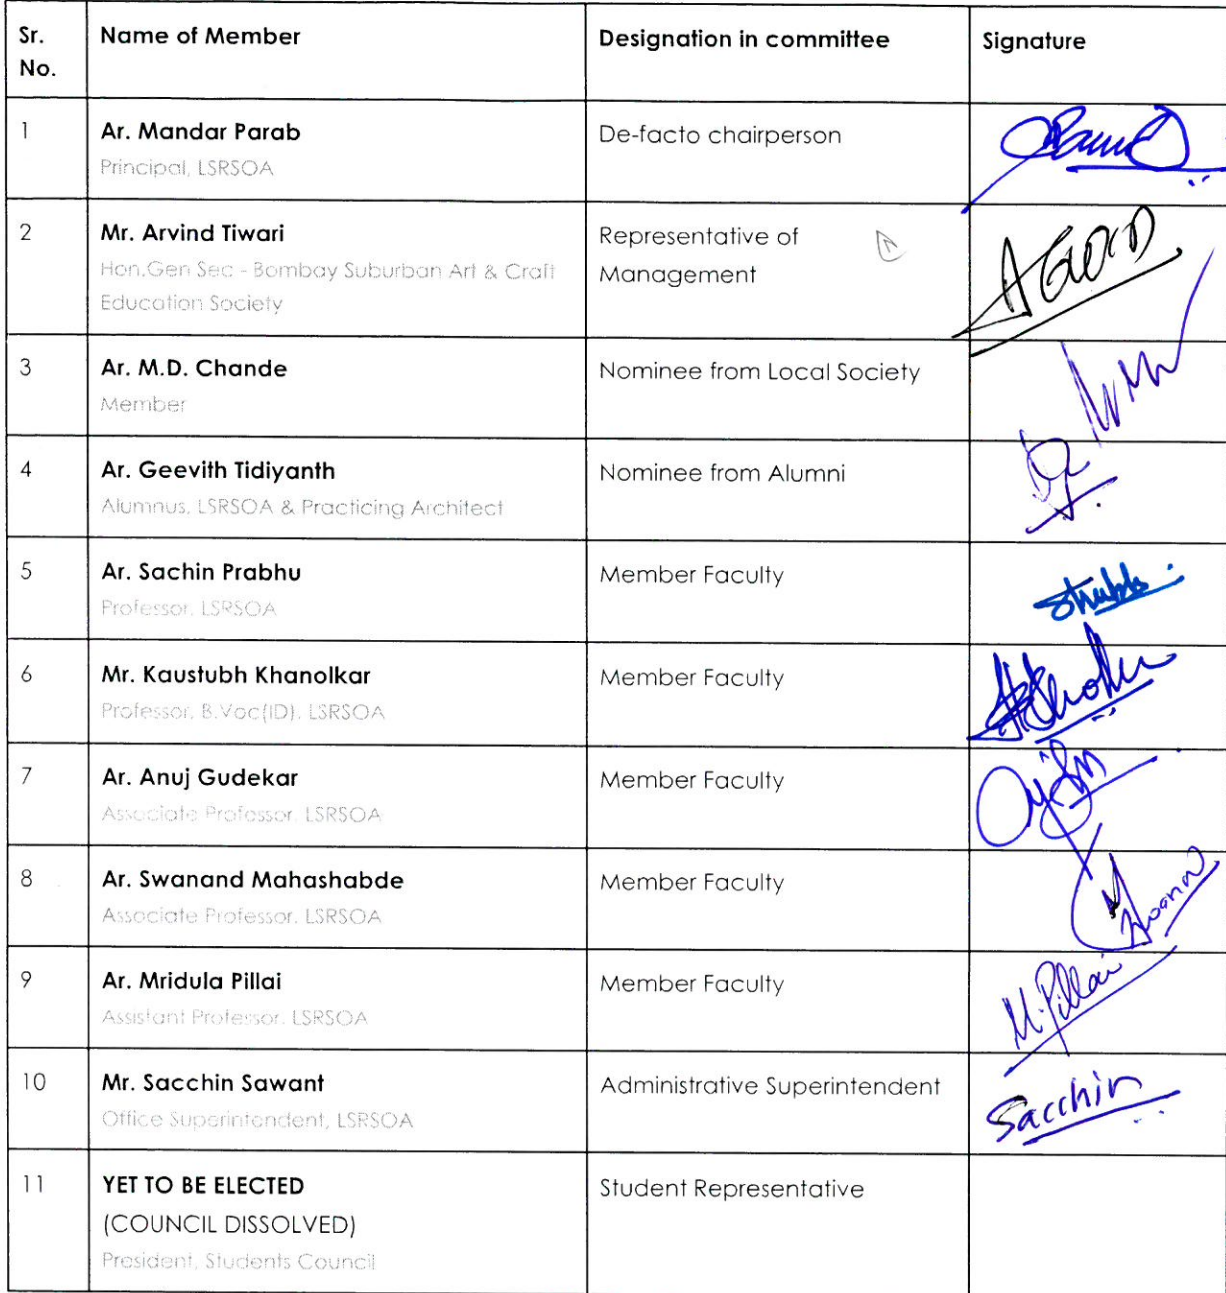 Sr. No.
Name of Member
Designation in committee
Signature
1
Ar. Mandar Parab
Principal, LSRSOA
De-facto chairperson
2
Mr. Arvind Tiwari
Hon.Gen Sec - Bombay Suburban Art & Craft
Education Society
Representative of
Management
3
Ar. M.D. Chande
Member
Nominee from Local Society
4
Ar. Geevith Tidiyanth
Alumnus, LSRSOA & Practicing Architect
Nominee from Alumni
5
Ar. Sachin Prabhu
Professor, LSRSOA
Member Faculty
6
Mr. Kaustubh Khanolkar
Professor, B.Voc(ID), LSRSOA
Member Faculty
7
Ar. Anuj Gudekar
Associate Professor, LSRSOA
Member Faculty
8
Ar. Swanand Mahashabde
Associate Professor, LSRSOA
Member Faculty
9
Ar. Mridula Pillai
Assistant Professor, LSRSOA
Member Faculty
M. Pillai
10
Mr. Sacchin Sawant
Office Superintendent, LSRSOA
Administrative Superintendent
Sacchin
11
YET TO BE ELECTED
(COUNCIL DISSOLVED)
President, Students Council
Student Representative